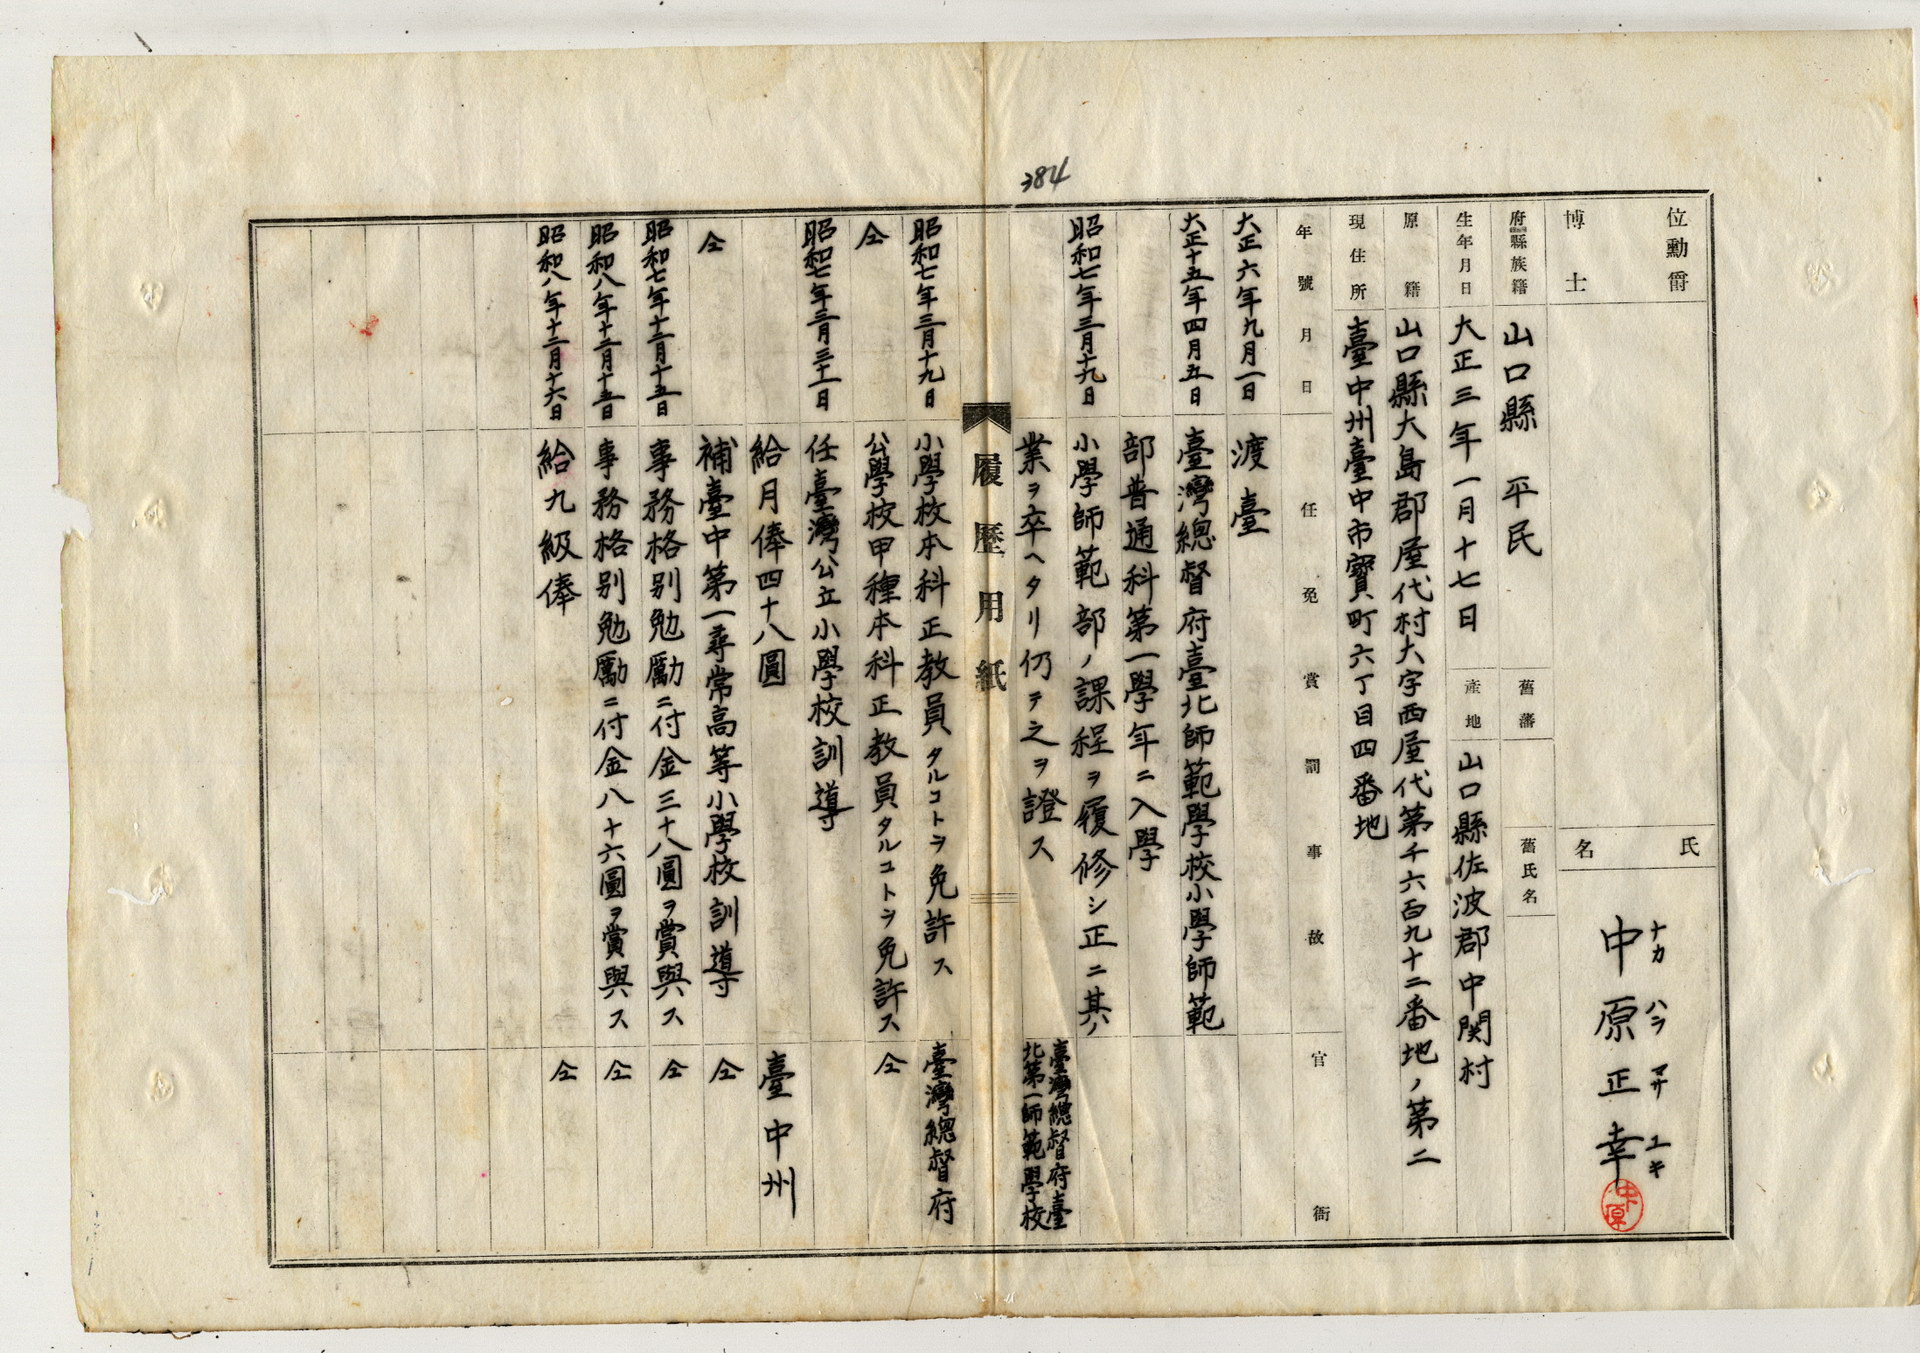 384
位勳爵
博士
府縣族籍
山口縣 平民
舊藩
舊氏名
氏名
ナカ ハラ マサ ユキ
中原正幸
中原
生年月日
大正三年一月十七日
產地
山口縣佐波郡中関村
原籍
山口縣大島郡屋代村大字西屋代第千六百九十二番地ノ第二
現住所
臺中州臺中市寶町六丁目四番地
年號月日
任免賞罰事故
官衙
大正六年九月一日
渡臺
大正十五年四月五日
臺灣總督府臺北師範學校小學師範
部普通科第一學年ニ入學
昭和七年三月十九日
小學師範部ノ課程ヲ履修シ正ニ其ノ
業ヲ卒ヘタリ仍テ之ヲ證ス
臺灣總督府臺
北第一師範學校
履歷用紙
昭和七年三月十九日
小學校本科正教員タルコトヲ免許ス
臺灣總督府
仝
公學校甲種本科正教員タルコトヲ免許ス
仝
昭和七年三月三十一日
任臺灣公立小學校訓導
給月俸四十八圓
臺中州
仝
補臺中第一尋常高等小學校訓導
仝
昭和七年十二月十五日
事務格別勉勵ニ付金三十八圓ヲ賞與ス
仝
昭和八年十二月十五日
事務格別勉勵ニ付金八十六圓ヲ賞與ス
仝
昭和八年十二月十六日
給九級俸
仝